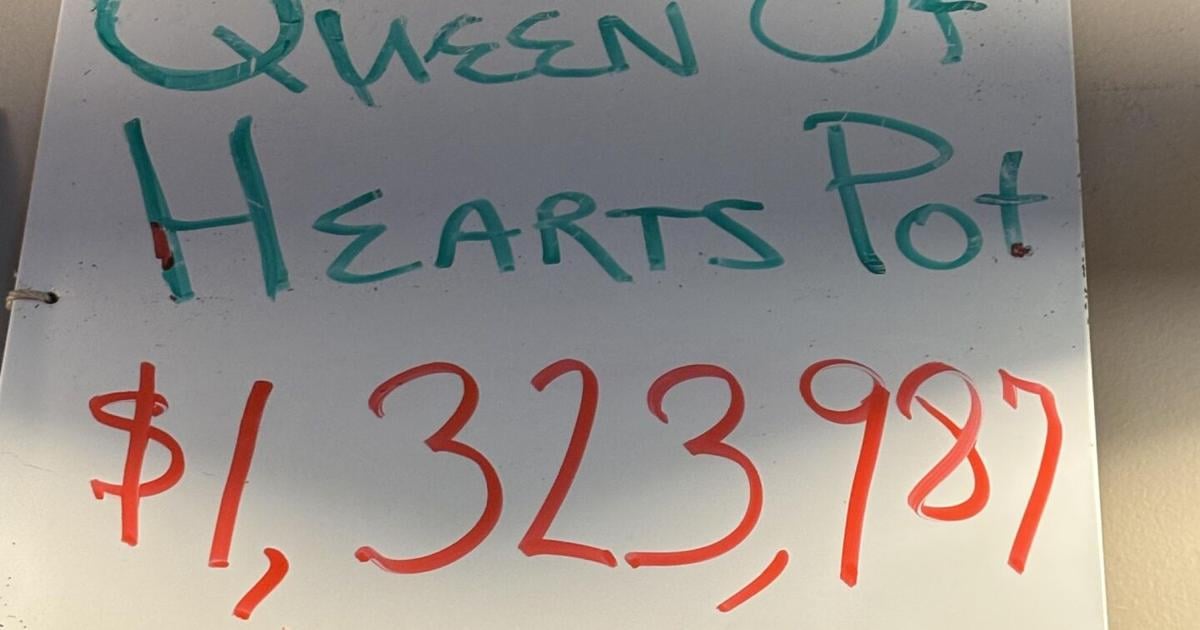 Queen Of
Hearts Pot
$1,323,987